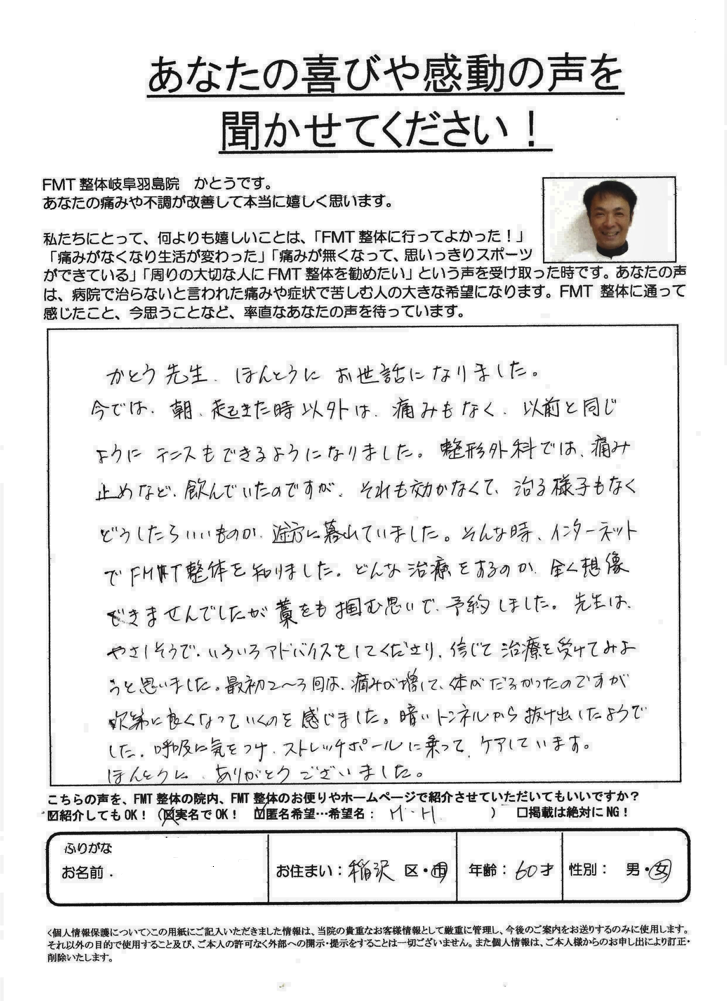 あなたの喜びや感動の声を
聞かせてください!
FMT整体岐阜羽島院 かとうです。
あなたの痛みや不調が改善して本当に嬉しく思います。
私たちにとって、何よりも嬉しいことは、「FMT整体に行ってよかった!」
「痛みがなくなり生活が変わった」「痛みが無くなって、思いっきりスポーツ
ができている」「周りの大切な人にFMT整体を勧めたい」という声を受け取った時です。あなたの声
は、病院で治らないと言われた痛みや症状で苦しむ人の大きな希望になります。FMT整体に通って
感じたこと、今思うことなど、率直なあなたの声を待っています。
かとう先生、ほんとうに お世話になりました。
今では、朝、起きた時以外は、痛みもなく、以前と同じ
ように テニスもできるようになりました。整形外科では、痛み
止めなど、飲んでいたのですが、それも効かなくて、治る様子もなく
どうしたらいいものか、途方に暮れていました。そんな時、インターネット
でFMT整体を知りました。どんな治療をするのか、全く想像
できませんでしたが藁をも掴む思いで、予約しました。先生は、
やさしそうで、いろいろアドバイスをしてくださり、信じて治療を受けてみよ
うと思いました。最初2〜3回は、痛みが増して、体がだるかったのですが
次第に良くなっていくのを感じました。暗いトンネルから抜け出したようで
した。呼吸に気をつけ、ストレッチポールに乗って、ケアしています。
ほんとうに、ありがとうございました。
こちらの声を、FMT整体の院内、FMT整体のお便りやホームページで紹介させていただいてもいいですか?
☑紹介してもOK! (☒実名でOK! ☑匿名希望…希望名: M・H ) □掲載は絶対にNG!
ふりがな
お名前. お住まい:稲沢 区・市 年齢:60才 性別: 男・女
<個人情報保護について>この用紙にご記入いただきました情報は、当院の貴重なお客様情報として厳重に管理し、今後のご案内をお送りするのみに使用します。
それ以外の目的で使用すること及び、ご本人の許可なく外部への開示・提示をすることは一切ございません。また個人情報は、ご本人様からのお申し出により訂正・
削除いたします。